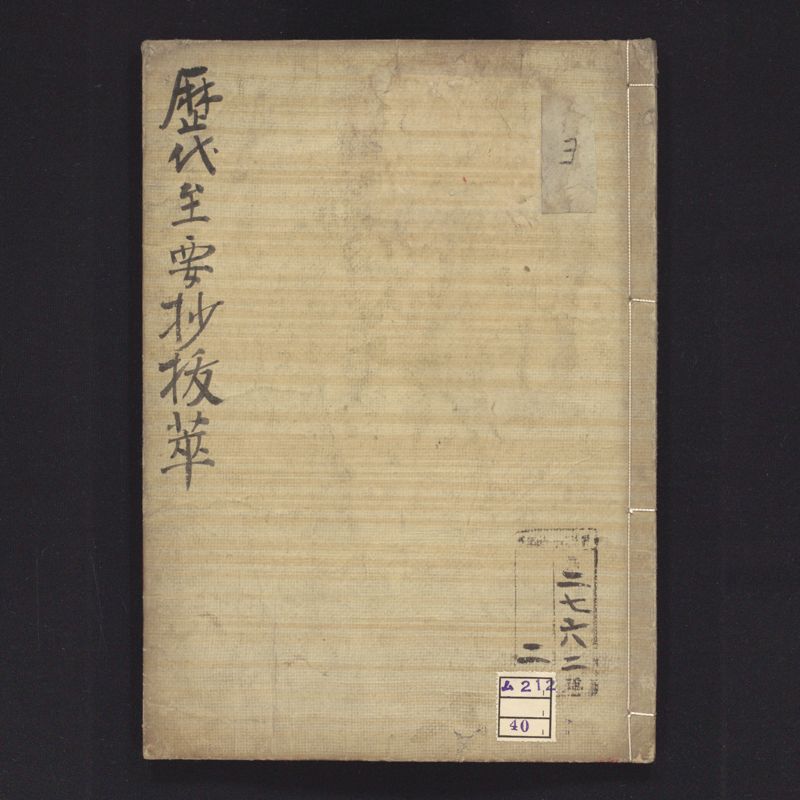 歴代至要抄抜萃
ヨ
二七六二
二
ム212
40